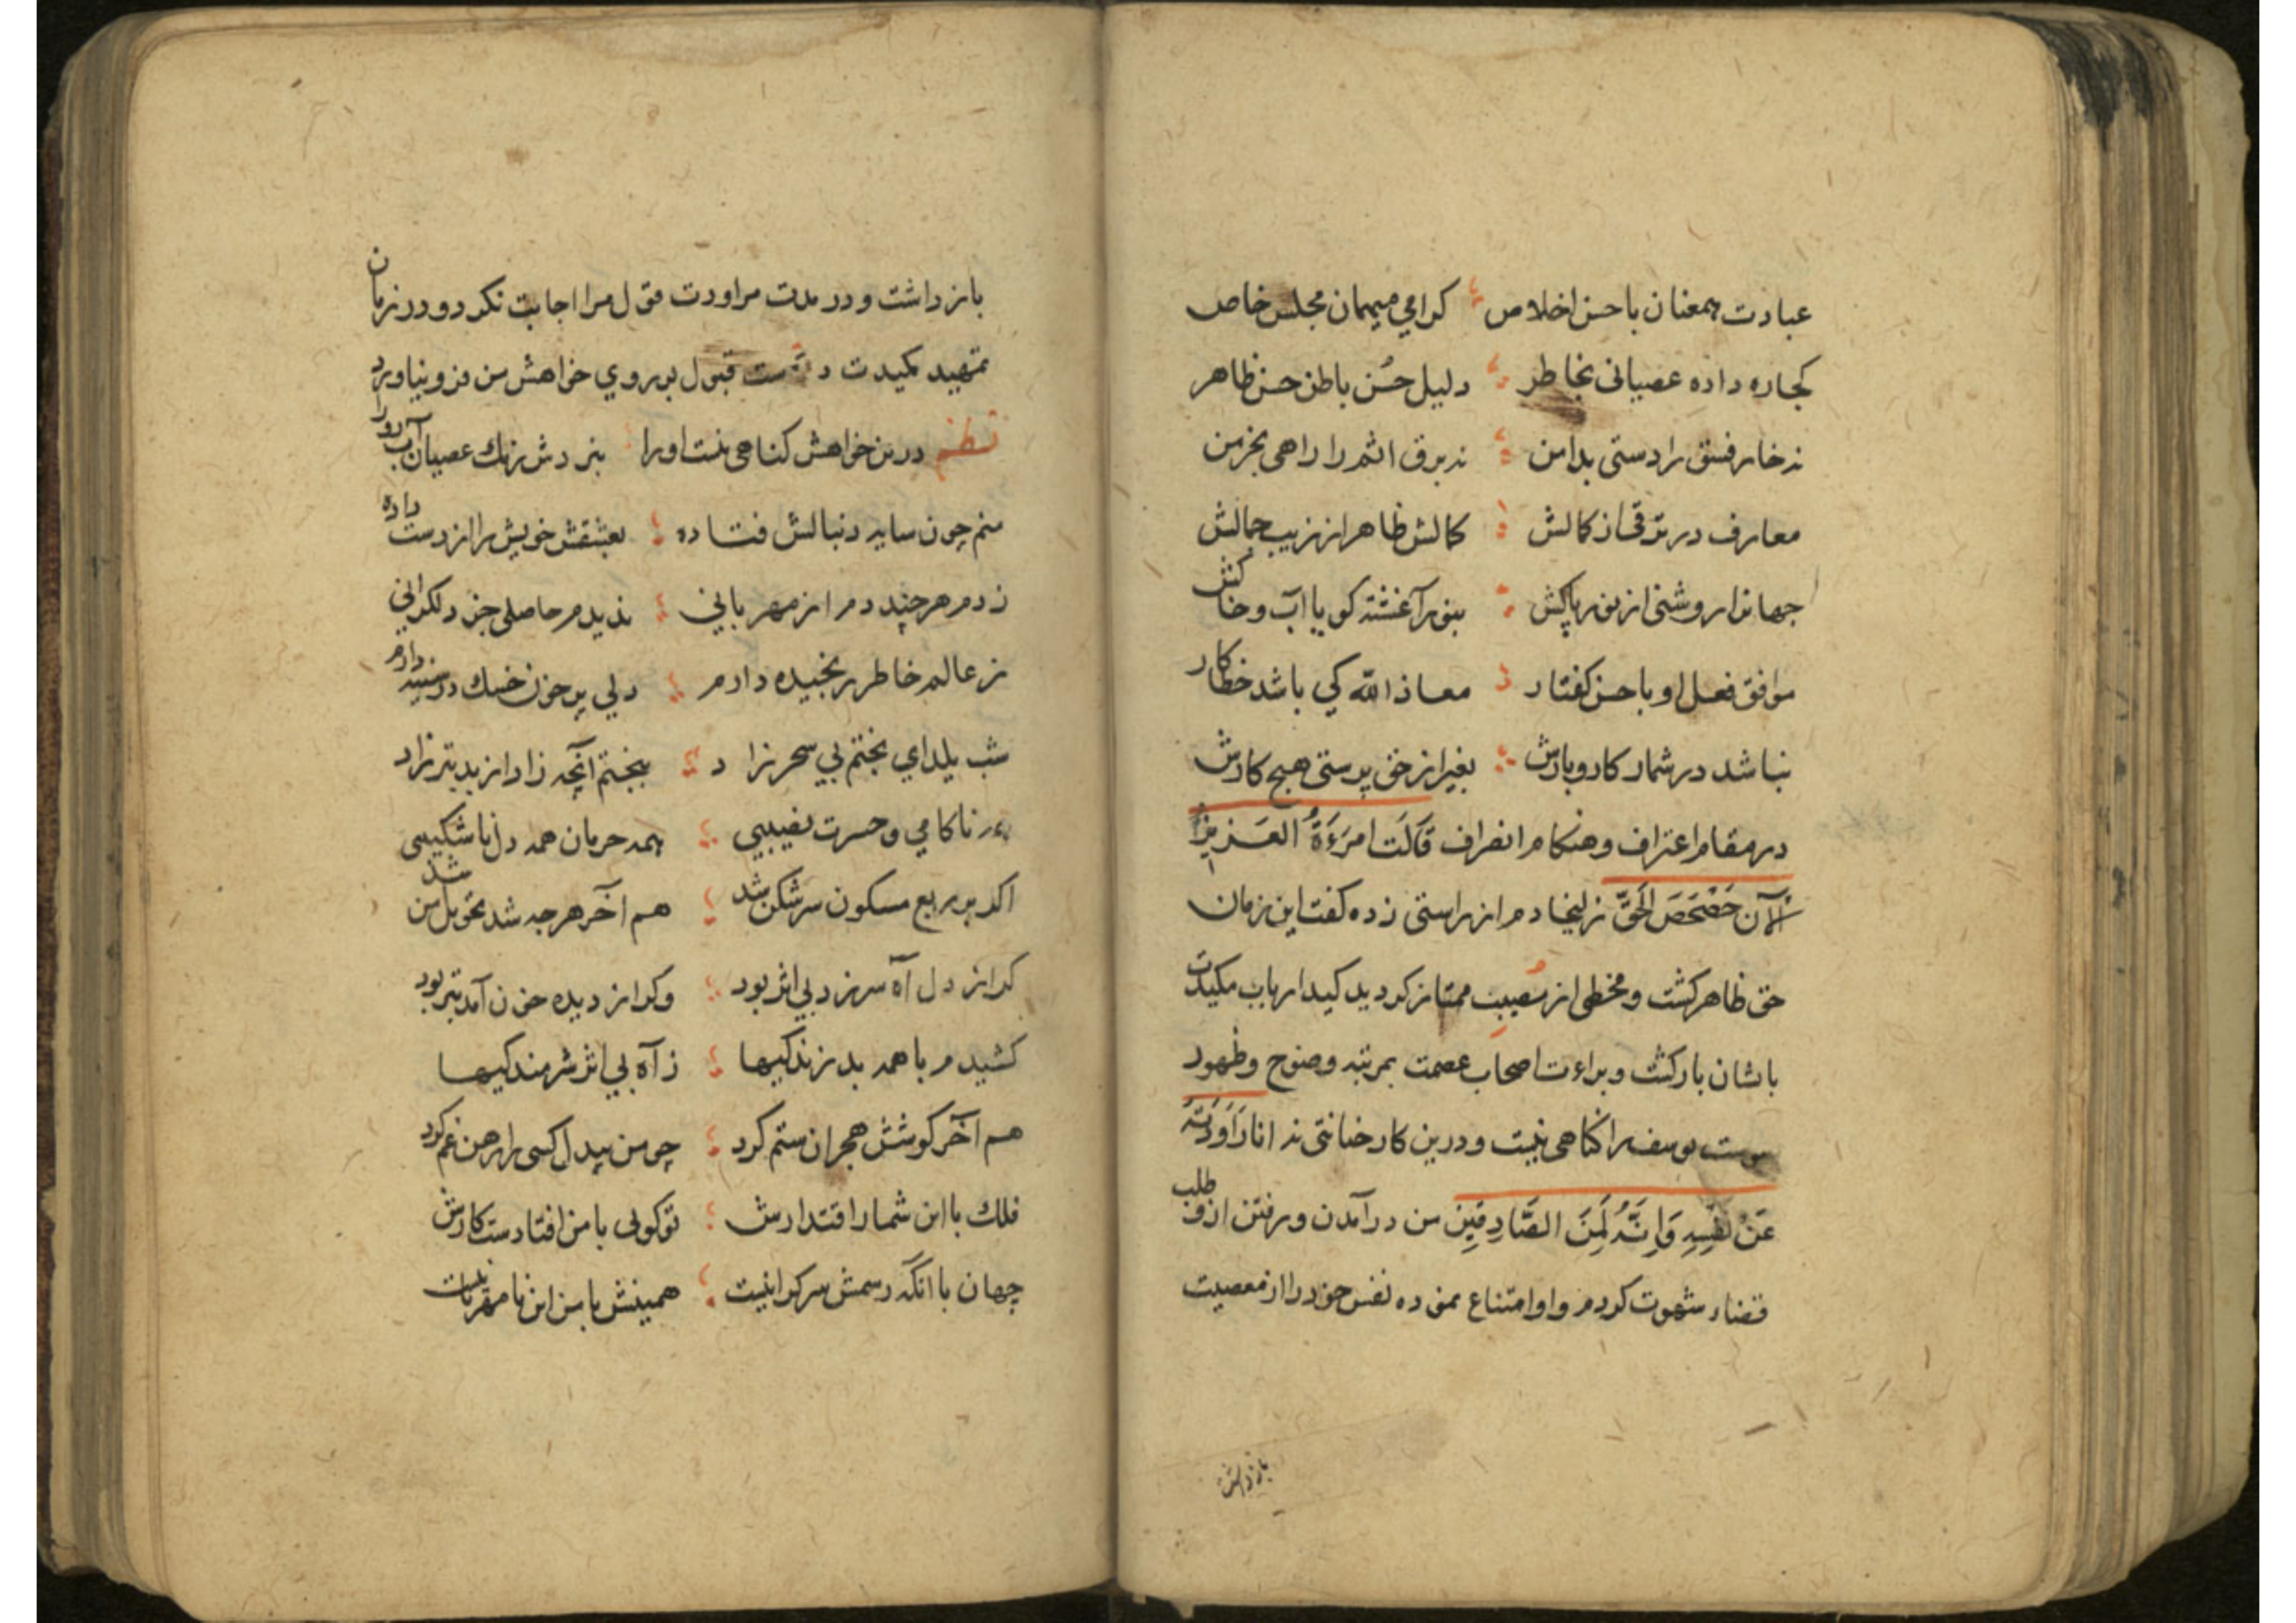 عبادت همعنان باحسن اخلاص کرامی میهمان مجلس خاص
کجا ره داده عصیانی بخاطر دلیل حُسن باطن حسن ظاهر
نه خار فسق را دستی بدامن نه برق اثم را راهی بخرمن
معارف در ترقی از کمالش کمالش ظاهر از زیب جمالش
جهانرا روشنی از نور پاکش بنور آغشته کویا آب و خاکش
موافق فعل او باحسن کفتار معاذ الله کی باشد خطاکار
نباشد در شمار کاروبارش بغیر از حق پرستی هیچ کارش
در مقام اعتراف و هنکام انصراف قَالَت امرَءَةُ العَزیزِ
الآن حَصْحَصَ الحَقّ زلیخا دم از راستی زده کفت این زمان
حق ظاهر کشت و مخطی از مصیب ممتاز کردید کید ارباب مکیدت
باشان بازکشت و براءت اصحاب عصمت بمرتبه وضوح و ظهور
یوسف را کناهی نیست و درین کار خیانتی نه انا رَاوَدتُهُ
عَنْ نفسِهِ وَاِنَّهُ لَمِنَ الصَّادِقِینَ من درآمدن و رفتن از و طلب
قضاء شهوت کردم و او امتناع نموده نفس خود را از معصیت
بازداشت
بازداشت و در مدت مراودت قول مرا اجابت نکرد و در زمان
تمهید مکیدت دست قبول بر روی خواهش من فرو نیاورد
نظم درین خواهش کناهی نیست او را نبردش زنک عصیان آب رو را
منم چون سایه دنبالش فتاده بعشقش خویش را از دست داده
زدم هرچند دم از مهربانی ندیدم حاصلی جز دلکرانی
ز عالم خاطر رنجیده دارم دلی پرخون خسک در سینه دارم
شب یلدای بختم بی سحر زاد ببختم آنچه زاد از بد بتر زاد
ناکامی و حسرت نصیبی همه حرمان همه دل ناشکیبی
اکر بر ربع مسکون سرشکن شد هم آخر هرچه شد تحویل من شد
کر از دل آه سر زد بی اثر بود وکر از دیده خون آمد بتر بود
کشیدم باهمه بد زندکیها ز آه بی اثر شرمندکیها
هم آخر کوشش هجران ستم کرد چو من بیدل کسی را رهن غم کرد
فلک با این شمار اقتدارش تو کوئی با من افتادست کارش
جهان با آنکه رسمش سرکرانیست همینش با من این نامهربانیست